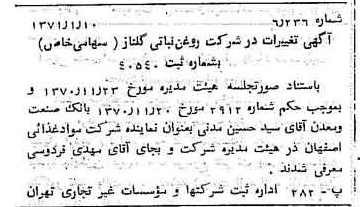 شماره ۶/۲۳۶ ۱۳۷۱/۱/۱۰
آگهی تغییرات در شرکت روغن نباتی گلناز ( سهامی خاص )
بشماره ثبت ۴۰۵۴۰
باستناد صورتجلسه هیئت مدیره مورخ ۱۳۷۰/۱۱/۲۳ و
بموجب حکم شماره ۲۹۱۲ مورخ ۱۳۷۰/۱۱/۲۰ بانک صنعت
ومعدن آقای سید حسین مدنی بعنوان نماینده شرکت موادغذائی
اصفهان در هیئت مدیره شرکت و بجای آقای مهدی فردوسی
معرفی شدند .
پ - ۲۸۲ اداره ثبت شرکتها و مؤسسات غیر تجاری تهران